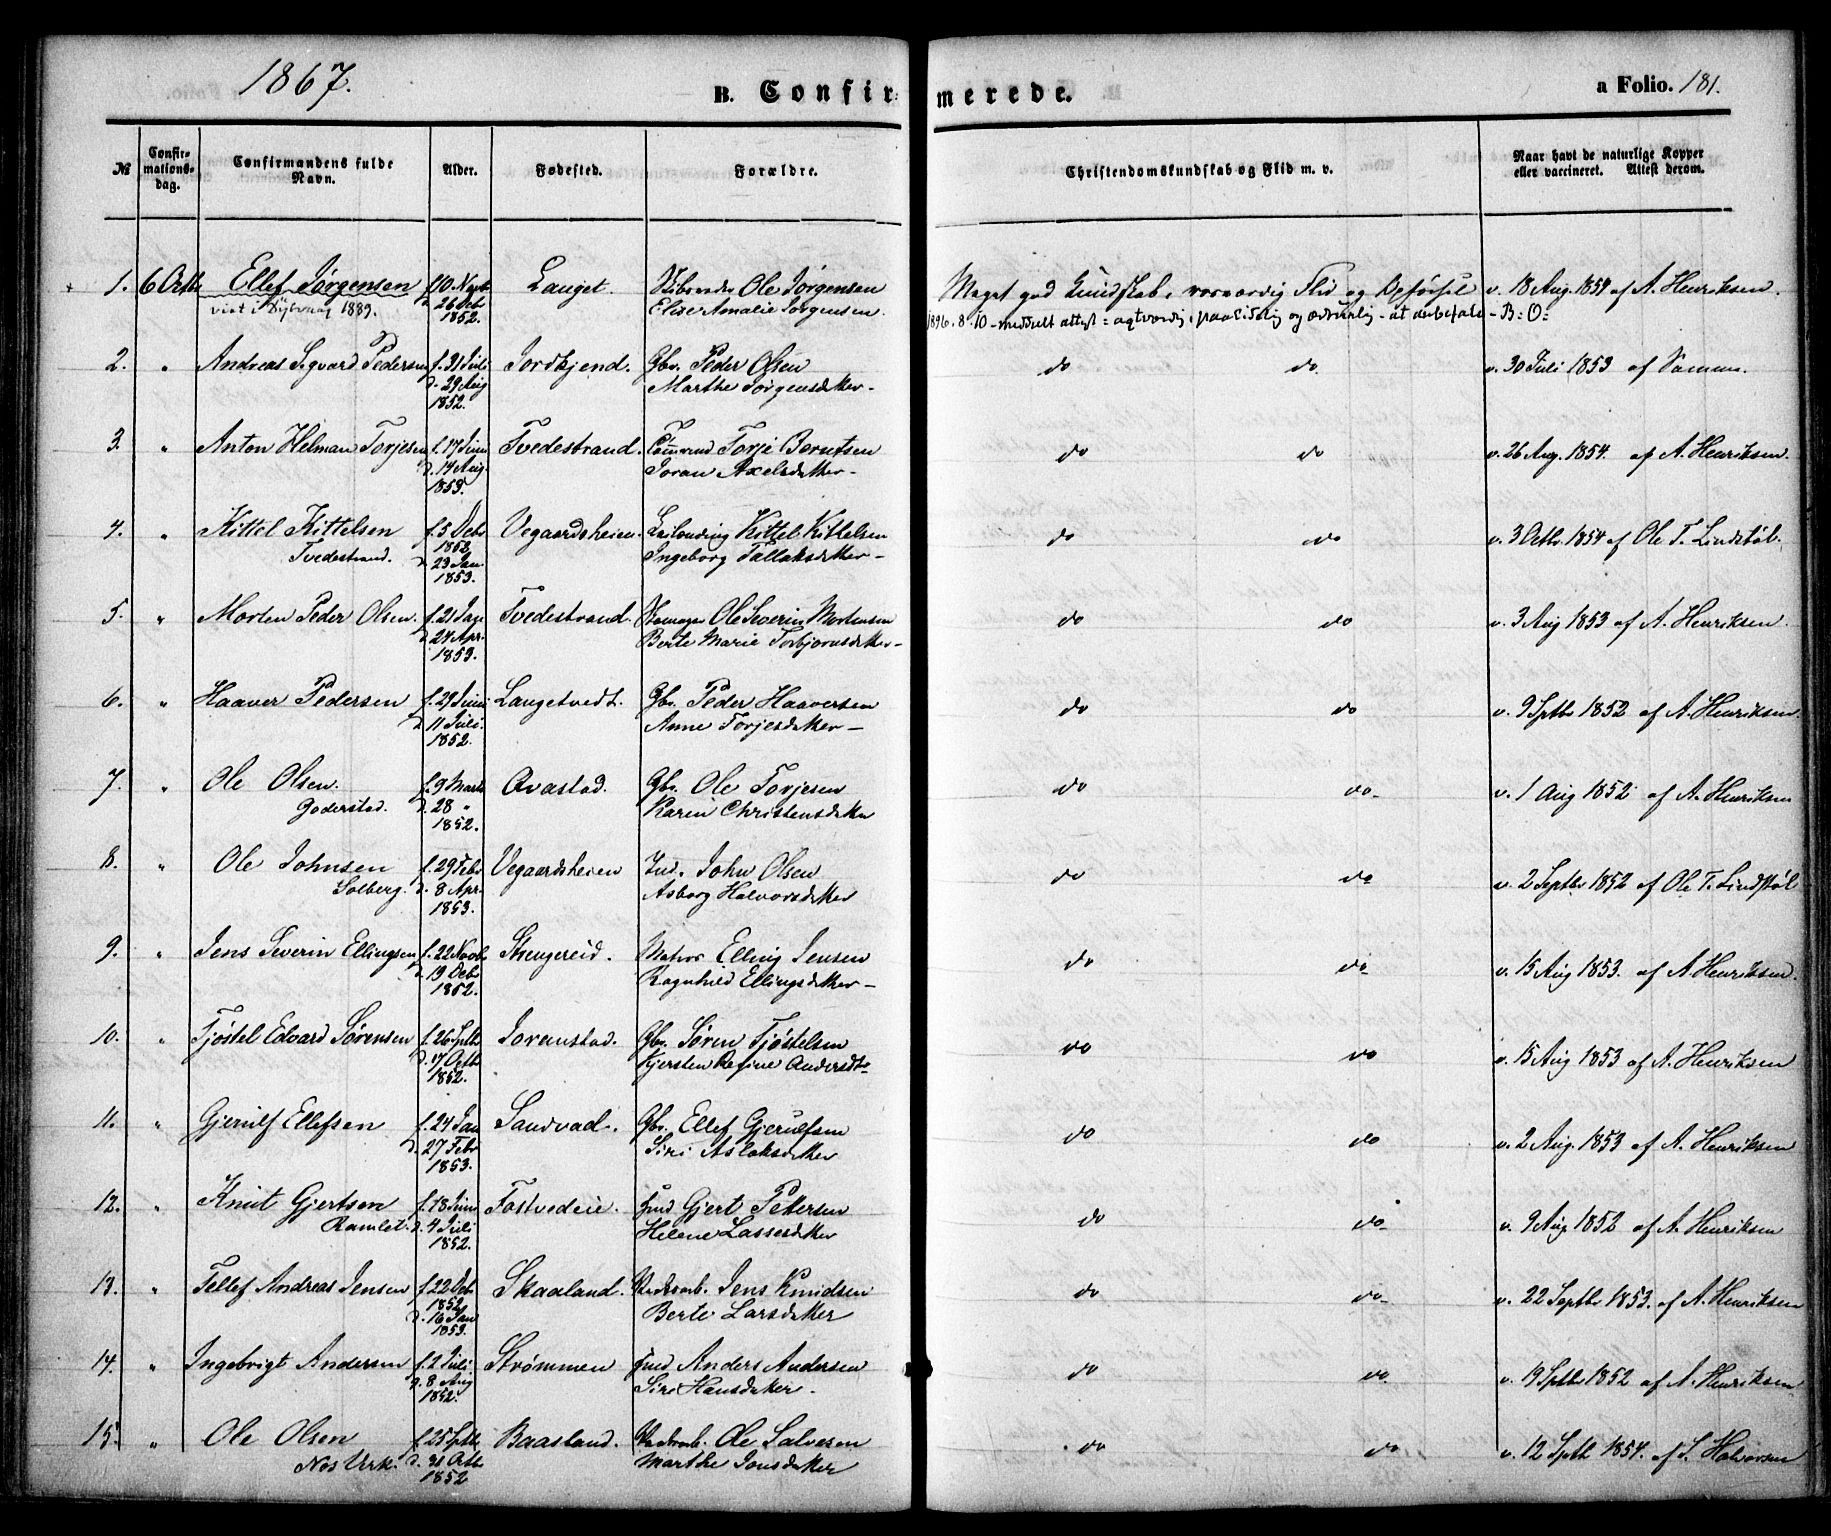 1867.
B. Confirmerede.
a Folio. 181.
№
Confirmationsdag.
Confirmandens fulde Navn.
Alder.
Fødested.
Forældre.
Christendomskundskab og Flid m. v.
Naar havt de naturlige Kopper eller vaccineret. Attest derom.
1. 6 Octb Ellef Jørgensen f. 10 Novb Lauget. Ole Jørgensen Meget god Kundskab, Flid og Opførsel v. 18 Aug. 1854 af A. Henriksen.
1889. d. 26 Dcb 1852. Elise Amalie Jørgensen. 1896. 8. 10 - meddelt attest - B: O:
2. " Andreas Sigvard Pedersen f. 31 Juli Jordkjend. Gbr. Peder Olsen do do v. 30 Juli 1853 af Samme.
d. 29 Aug 1852. Marthe Jørgensdatter -
3. " Anton Helman Torjesen f. 17 Juni Tvedestrand. Tømmermd Torje Berntsen do do v. 26 Aug. 1854. af A. Henriksen.
d. 14 Aug 1853. Joran Axelsdatter -
4. " Kittel Kittelsen f. 5 Decb 1852 Vegaardsheien. Leilending Kittel Kittelsen do do v. 3 Octb. 1854 af Ole T. Lindstøl.
Tvedestrand. d. 23 Jan 1853. Ingeborg Tallaksdatter -
5. " Morten Peder Olsen. f. 21 Jan Tvedestrand. Ole Severin Mortensen do do v. 3 Aug 1853 af A. Henriksen.
d. 24 Apr. 1853. Berte Marie Torbjørnsdatter -
6. " Haaver Pedersen f. 29 Juni Langetvedt. Gbr. Peder Haaversen do do v. 9 Septb 1852 af A. Henriksen.
d. 11 Juli. 1852. Anne Torjesdatter -
7. " Ole Olsen. f. 9 Marts Qvastad. Gbr. Ole Torjesen do do v. 1 Aug 1852 af A. Henriksen
Goderstad. d. 28 " 1852. Karen Christensdatter
8. " Ole Johnsen f. 29 Febr Vegaardsheien Ind. John Olsen do do v. 2 Septbr 1852 af Ole T. Lindstøl
Solberg. d. 8 Apr. 1853. Asborg Halvorsdatter
9. " Jens Severin Ellingsen f. 22 Novb. Stengereid. Matros Elling Jensen do do v. 15 Aug 1853. af A. Henriksen.
d. 19 Decb 1852. Ragnhild Ellingsdatter -
10. " Tjøstel Edvard Sørensen f. 26 Septb Goranstad. Gbr. Søren Tjøstelsen do do v. 15 Aug 1853 af A. Henriksen
d. 17 Octb 1852. Kjersten Refine Andersdt-
11. " Gjerulf Ellefsen f. 24 Jan Sandvad. Gbr. Ellef Gjerulfsen do do v. 2 Aug. 1853 af A. Henriksen
d. 27 Febr 1853. Siri Aslaksdatter
12. " Knut Gjertsen f. 18 Juni Fostvedeie. Hmd Gjert Pettersen do do v. 9 Aug 1852 af A. Henriksen
Ramlet. d. 4 Juli 1852. Helene Lassesdatter
13. " Tellef Andreas Jensen f. 22 Dcb 1852 Skaaland. Jens Knudsen do do v. 22 Septbr 1853. af A. Henriksen
d. 16 Jan 1853. Berte Larsdatter
14. " Ingebrigt Andersen f. 2 Juli Strømmen Hmd Anders Andersen do do v. 19 Septbr 1852 af A. Henriksen
d. 8 Aug 1852. Siri Hansdatter.
15. " Ole Olsen f. 25 Septb Baasland. Ole Salvesen do do v. 12 Septb 1854. af S. Halvorsen
Nes Verk. d. 31 Octb 1852 Marthe Jonsdatter